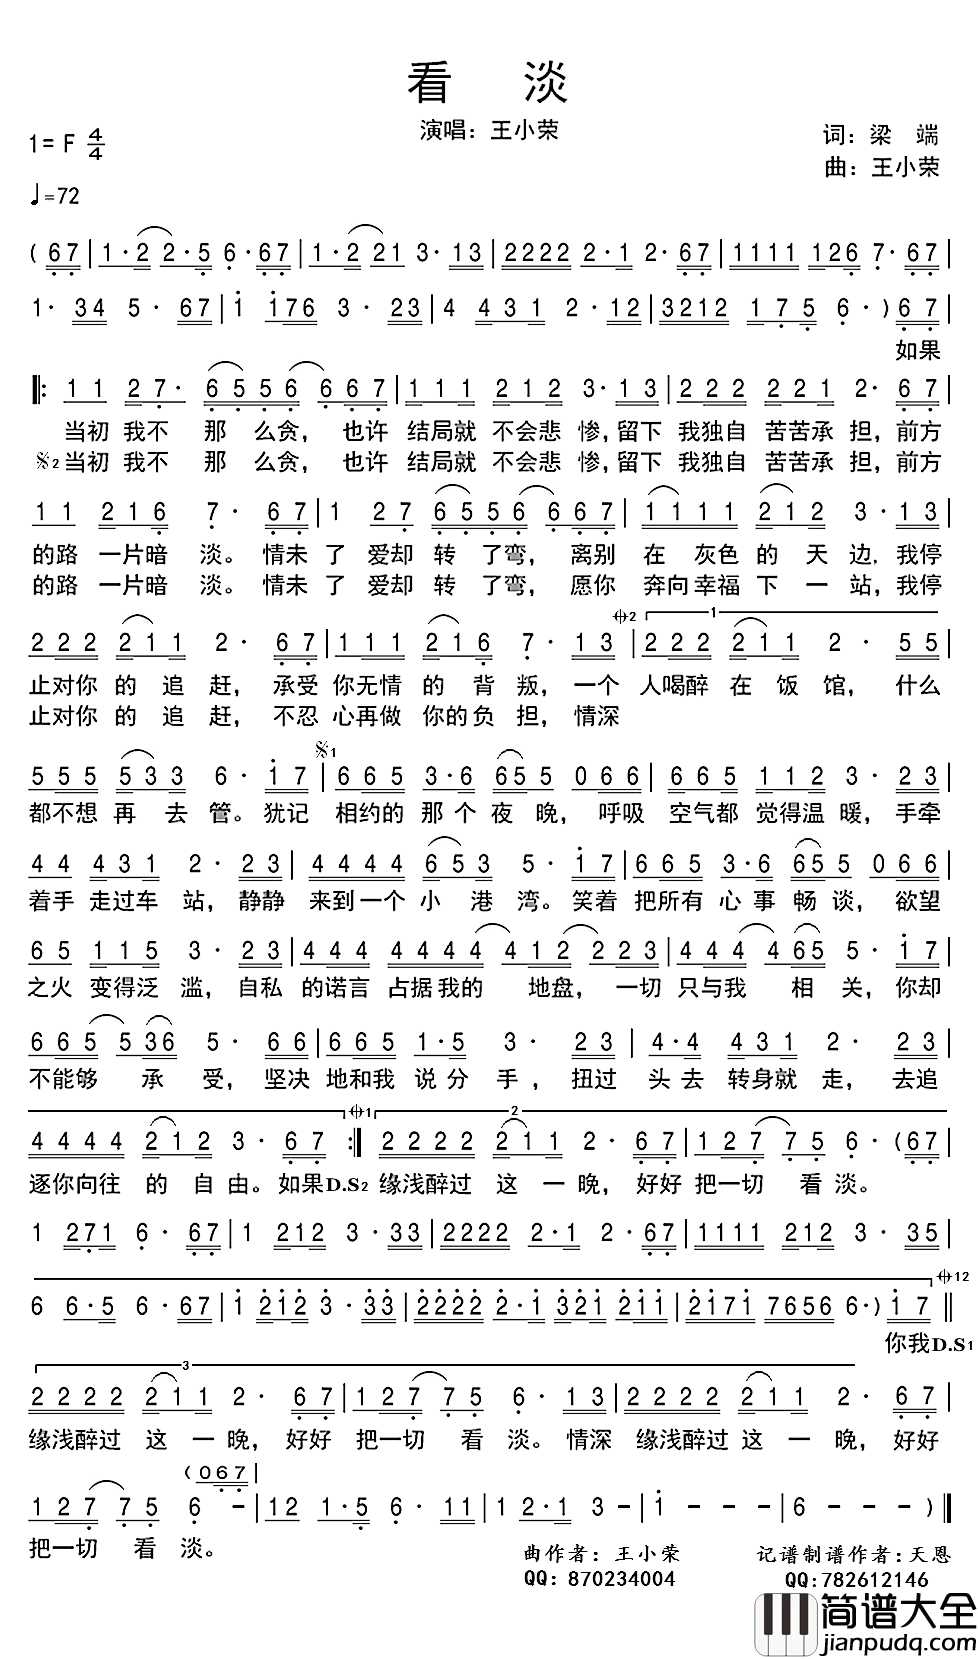 看 淡
演唱：王小荣
1=F 4/4
词：梁 端
曲：王小荣
♩=72
( 67 | 1·2 2·5 6·67 | 1·2 21 3·13 | 2222 2·1 2·67 | 1111 126 7·67 |
1· 34 5· 67 | 1 176 3· 23 | 4 431 2·12 | 3212 175 6·) 67 |
如果
‖: 11 27· 6556 667 | 111 212 3·13 | 222 221 2· 67 |
当初 我不 那 么贪， 也许 结局就 不会悲 惨，留下 我独自 苦苦承 担，前方
𝄋2 当初 我不 那 么贪， 也许 结局就 不会悲 惨，留下 我独自 苦苦承 担，前方
11 216 7· 67 | 1 27 6556 667 | 1111 212 3·13 |
的路 一片暗 淡。 情未 了 爱却 转 了弯， 离别 在 灰色 的 天 边，我停
的路 一片暗 淡。 情未 了 爱却 转 了弯， 愿你 奔向 幸福 下 一 站，我停
222 211 2· 67 | 111 216 7· 13 | 222 211 2· 55 |
𝄌2 1
止对你 的 追 赶， 承受 你无情 的 背 叛，一个 人喝醉 在 饭 馆， 什么
止对你 的 追 赶， 不忍 心再做 你的 负 担，情深
𝄋1
555 533 6· 17 | 665 3·6 655 066 | 665 112 3· 23 |
都不想 再 去 管。 犹记 相约的 那 个 夜 晚， 呼吸 空气都 觉得温 暖，手牵
44 431 2· 23 | 4444 653 5· 17 | 665 3·6 655 066 |
着手 走过车 站，静静 来到一个 小 港 湾。笑着 把所有 心 事 畅 谈，欲望
65 115 3· 23 | 444 4444 412 223 | 444 465 5· 17 |
之火 变得泛 滥，自私 的诺言 占据我的 地盘，一切 只与我 相 关，你却
665 536 5· 66 | 665 1·5 3· 23 | 4·4 431 2· 23 |
不能够 承 受，坚决 地和我 说 分 手，扭过 头 去 转身就 走，去追
𝄌1 2
4444 212 3· 67 :‖ 2222 211 2· 67 | 127 75 6· (67 |
逐你向往 的 自 由。如果D.S2 缘浅醉过 这 一 晚，好好 把一切 看 淡。
1 271 6· 67 | 1 212 3· 33 | 2222 2·1 2·67 | 1111 212 3· 35 |
𝄌12
6 6·5 6·67 | 1 212 3·33 | 2222 2·1 321 211 | 2171 7656 6·) 17 ‖
你我D.S1
3
2222 211 2· 67 | 127 75 6· 13 | 2222 211 2· 67 |
缘浅醉过 这 一 晚，好好 把一切 看 淡。情深 缘浅醉过 这 一 晚，好好
(067 |
127 75 6 - | 12 1·5 6·11 | 1 2·1 3 - | 1 - - - | 6 - - ) ‖
把一切 看 淡。
曲作者：王小荣
记谱制谱作者：天恩
QQ：870234004
QQ:782612146
简谱大全
jianpudq.com